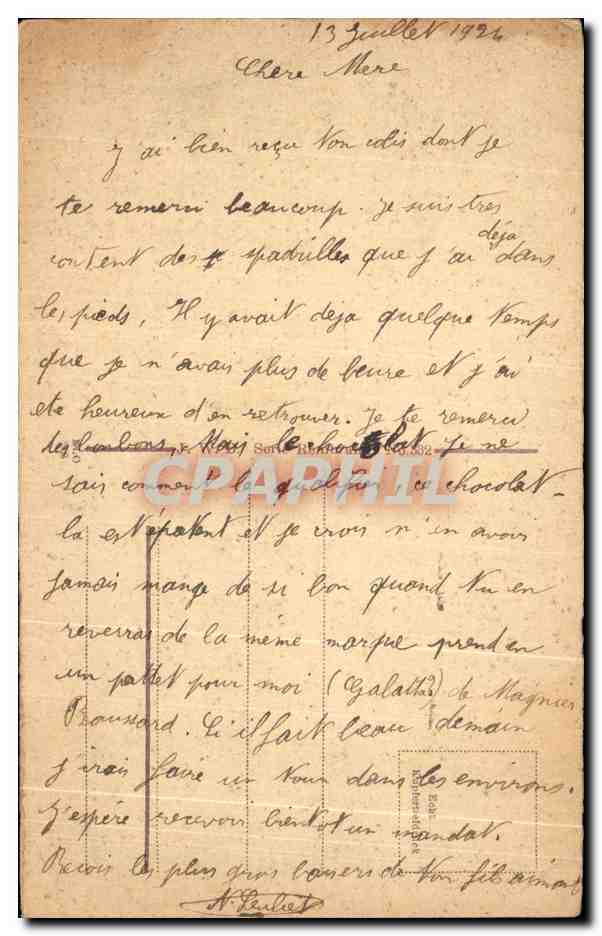 13 Juillet 1924
Chere Mere
J'ai bien reçu ton colis dont je
te remerci beaucoup. Je suis tres
content des spadrilles que j'ai déja dans
les pieds, Il y avait deja quelque temps
que je n'avais plus de beure et j'ai
ete heureux d'en retrouver. Je te remerci
des bonbons, Mais le chocolat je ne
sais comment le qualifier, ce chocolat
la est épatent et je crois n'en avoir
jamais mange de si bon quand tu en
reverras de la même marque prend en
un pattet pour moi (Galathas) de Magnier
Roussard. Si il fait beau demain
j'irais faire un tour dans les environs.
J'espére recevoir bientot un mandat.
Recois les plus gros baisers de ton fils aimant
CPARPHIL
Echt
Kupfertiefdruck